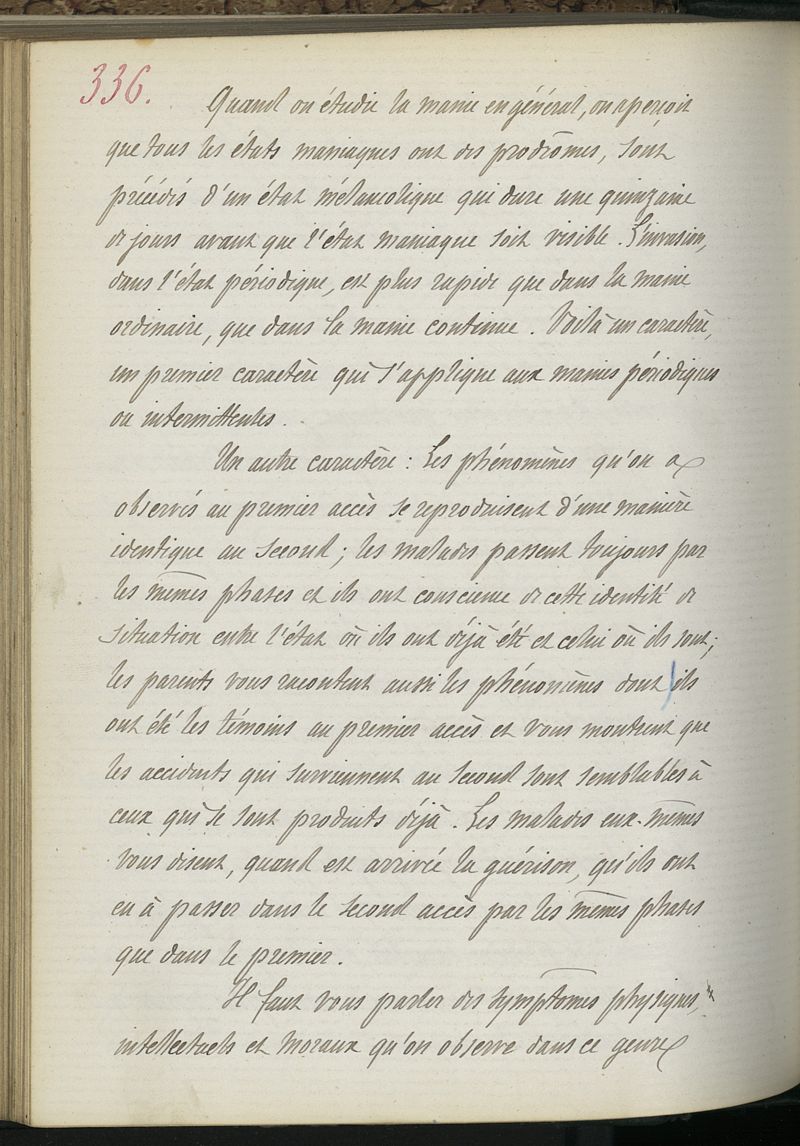 336.
Quand on étudie la manie en général, on aperçoit
que tous les états maniaques ont des prodrômes, sont
précédés d'un état mélancolique qui dure une quinzaine
de jours avant que l'état maniaque soit visible. L'invasion,
dans l'état périodique, est plus rapide que dans la manie
ordinaire, que dans la manie continue. Voilà un caractère,
un premier caractère qui s'applique aux manies périodiques
ou intermittentes.
Un autre caractère : Les phénomènes qu'on a
observés au premier accès se reproduisent d'une manière
identique au second ; les malades passent toujours par
les mêmes phases et ils ont conscience de cette identité de
situation entre l'état où ils ont déjà été et celui où ils sont ;
les parents vous racontent aussi les phénomènes dont ils
ont été les témoins au premier accès et vous montrent que
les accidents qui surviennent au second sont semblables à
ceux qui se sont produits déjà. Les malades eux-mêmes
vous disent, quand est arrivée la guérison, qu'ils ont
eu à passer dans le second accès par les mêmes phases
que dans le premier.
Il faut vous parler des symptômes physiques,
intellectuels et moraux qu'on observe dans ce genre